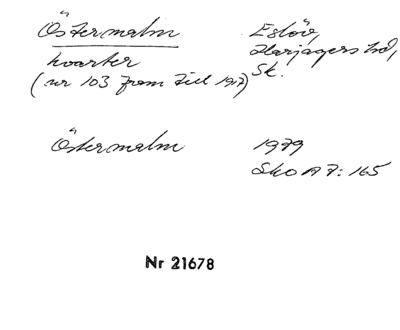 Östermalm Eslöv,
kvarter Harjagers hd,
(nr 103 fram till 1917) Sk.
Östermalm 1979
Sko A 7: 165
Nr 21678